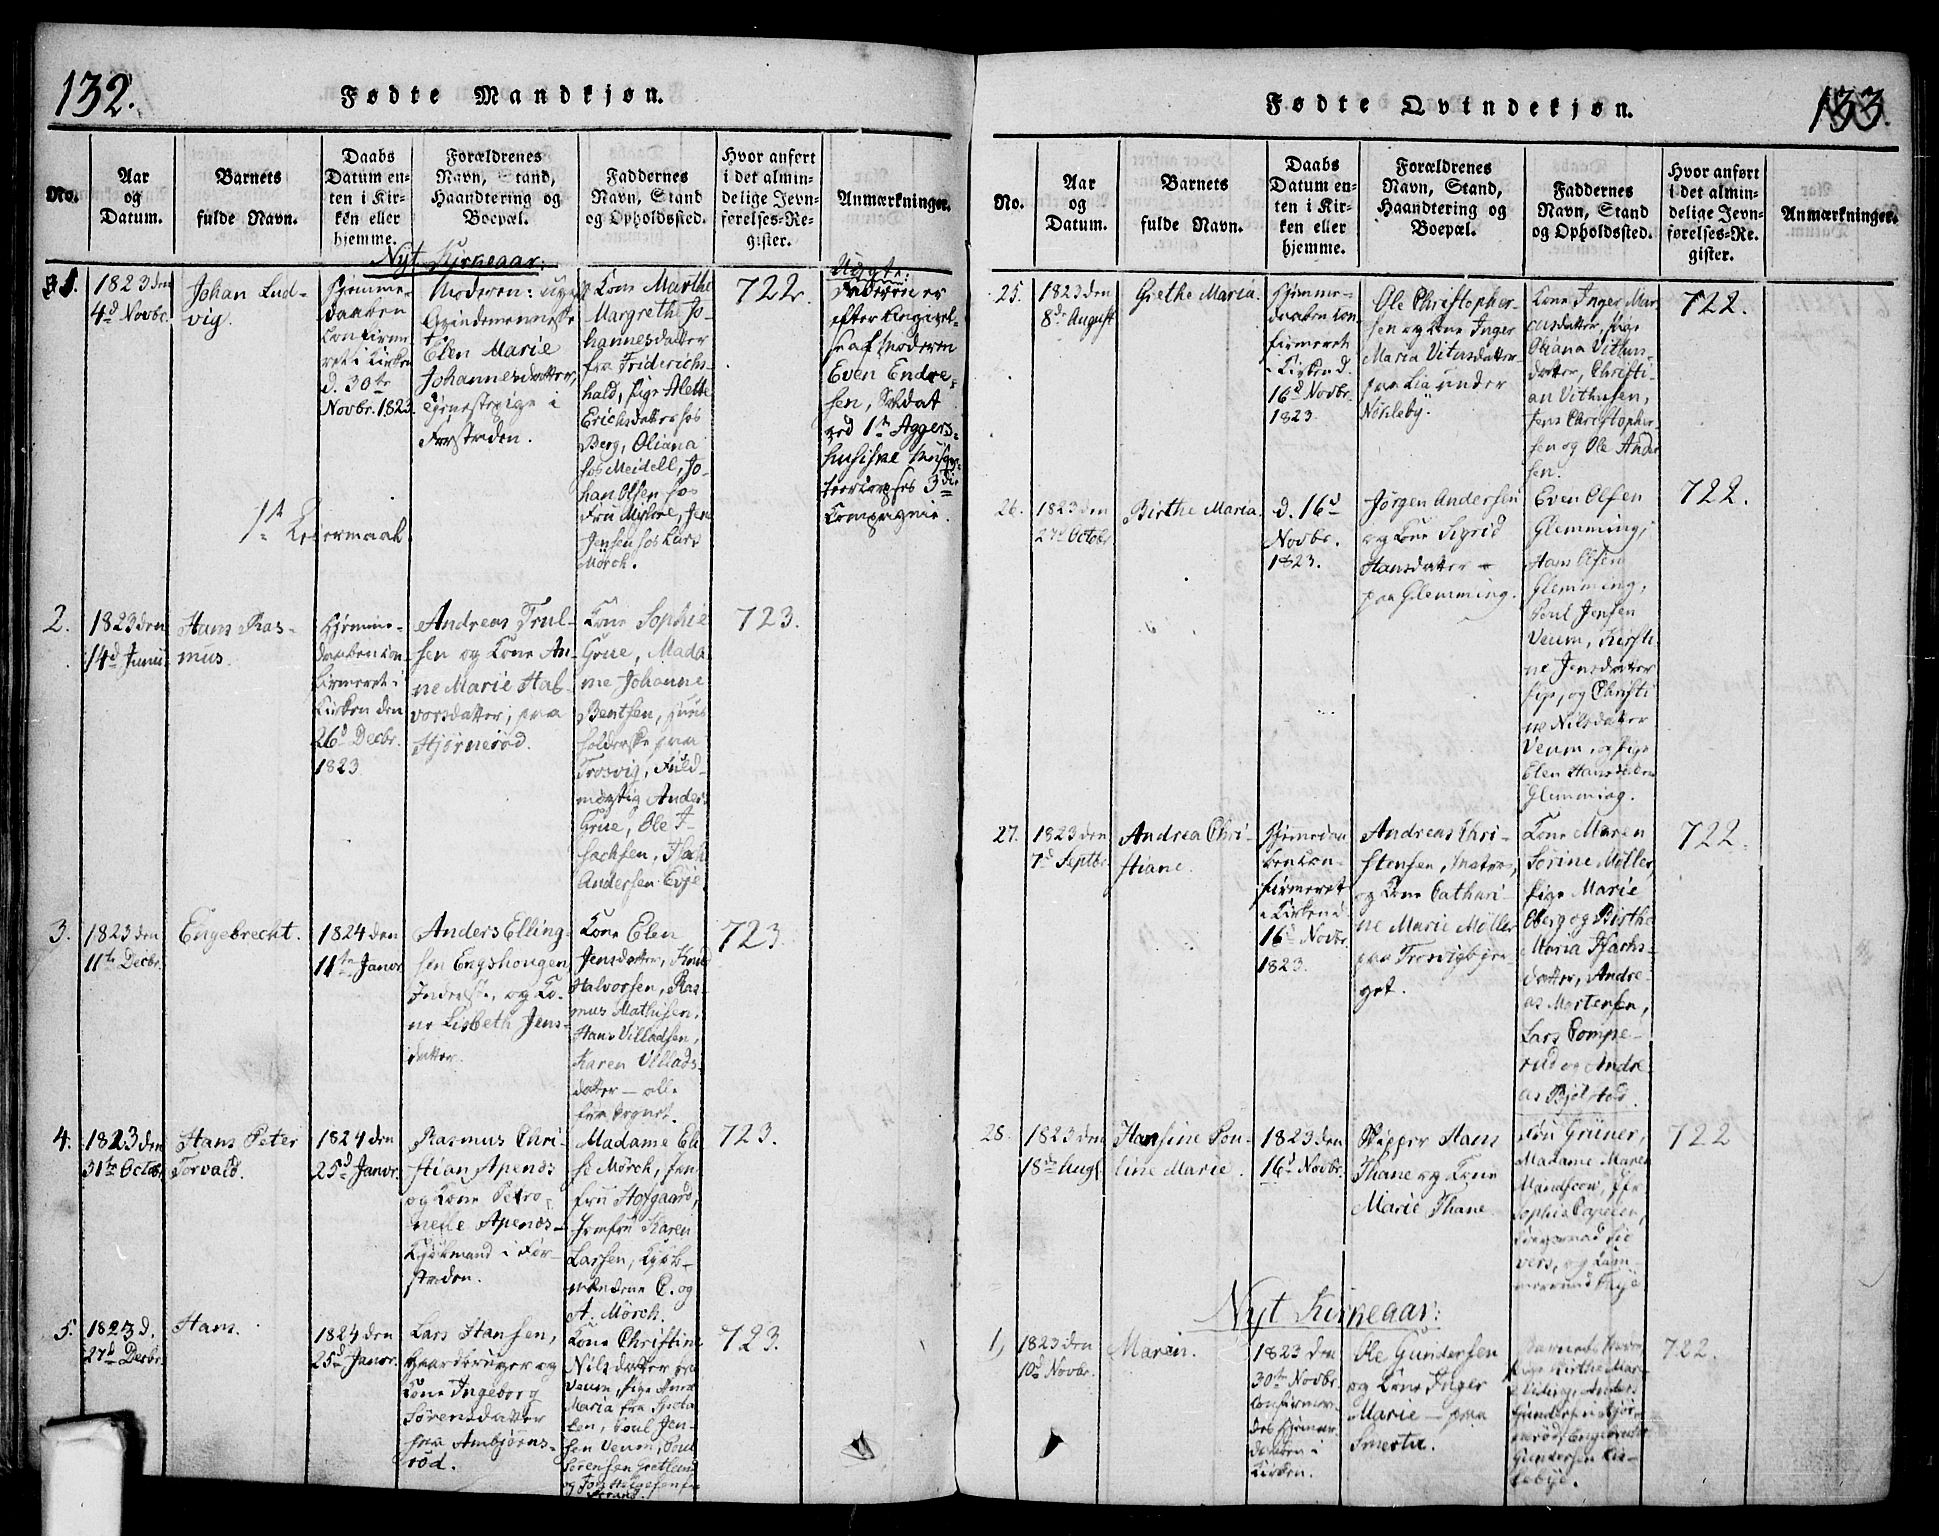 132.
Fødte Mandkjøn.
No.
Aar
og
Datum.
Barnets
fulde Navn.
Daabs
Datum en-
ten i Kir-
ken eller
hjemme.
Forældrenes
Navn, Stand,
Haandtering og
Boepæl.
Faddernes
Navn, Stand
og Opholdssted.
Hvor anført
i det almin-
delige Jevn-
førelses-Re-
gister.
Anmærkninger.
Nyt Kirkeaar:
1.
1823 den
4d Novbr.
Johan Lud-
vig.
Hjemme-
daaben
Confirme-
ret i Kirken
d. 30te
Novbr. 1823.
Moderen: ugift
Qvindemenneske
Elen Marie
Johannesdatter,
tjenestepige i
Forstaden.
Kone Marthe
Margrethe Jo-
hannesdatter
fra Friderichs-
hald, Pige Alette
Erichsdatter hos
Berg, Oliana
hos Meidell, Jo-
han Olsen hos
Fru Mylore, Jens
Jensen hos Lars
Mörch.
722.
Uægte:
Faderen er
efter Angivel-
se af Moderen
Even Endre-
sen, Soldat
ved 1te Aggers-
huusiske Musqve-
teer Corpses 3die
Compagnie.
1te Leiermaal.
2.
1823 den
14d Junii
Hans Ras-
mus.
Hjemme-
daaben con-
firmeret i
Kirken den
26d Decbr.
1823
Andreas Trul-
sen og Kone An-
ne Marie Hal-
vorsdatter, paa
Hjørnerød.
Kone Sophie
Grue, Mada-
me Johanne
Bentsen, Huus-
holderske paa
Trosvig, Fuld-
mægtig Anders
Grue, Ole I-
sachsen, Isach
Andersen Evje.
723.
3.
1823 den
11te Decbr.
Engebrecht.
1824 den
11te Janvr.
Anders Elling-
sen Engshougen
Inderste, og Ko-
ne Lisbeth Jens-
datter.
Kone Elen
Jensdatter, Knud
Halvorsen, Ras-
mus Mathisen,
Hans Villadsen,
Karen Villads-
datter – alle
fra Sognet.
723.
4.
1823 den
31te Octbr.
Hans Peter
Torvald.
1824 den
25d Janvr.
Rasmus Chri-
stian Apenæs
og Kone Petro-
nelle Apenæs –
Kjøbmand i For-
staden.
Madame Eli-
se Mörch, Jom-
fru Hofgaard,
Jomfru Karen
Larsen, Kjøb-
mændene C. og
A. Mörch.
723.
5.
1823 d.
27d Decbr.
Hans.
1824 den
25d Janvr.
Lars Hansen,
Gaardbruger og
Kone Ingeborg
Sørensdatter
paa Ambjørns-
rød.
Kone Christine
Nilsdatter paa
Veum, Pige Anne
Maria fra
Poul Jen-
sen Veum, Poul
Sørensen
723.
133.
Fødte Qvindekjøn.
No.
Aar
og
Datum.
Barnets
fulde Navn.
Daabs
Datum en-
ten i Kir-
ken eller
hjemme.
Forældrenes
Navn, Stand,
Haandtering og
Boepæl.
Faddernes
Navn, Stand
og Opholdssted.
Hvor anført
i det almin-
delige Jevn-
førelses-Re-
gister.
Anmærkninger.
25.
1823 den
8de August
Grethe Maria.
Hjemme-
daaben con-
firmeret
i Kirken d.
16d Novbr.
1823.
Ole Christopher-
sen og Kone Inger
Maria Vitusdatter
paa Lia under
Nörleby.
Kone Inger Mar-
cusdatter, Pige
Oliana Vithus-
datter, Christi-
an Vithusen,
Jens Christopher-
sen og Ole Ander-
sen.
722.
26.
1823 den
27d Octobr.
Birthe Maria.
d. 16d
Novbr.
1823.
Jørgen Andersen
og Kone Sigrid
Hansdatter –
paa Glemming.
Even Olsen
Glemming,
Hans Olsen
Glemming,
Poul Jensen
Veum, Kirsti-
ne Jensdatter
og Christi-
ne Nilsdatter
Veum, og Pige
Elen Hansdatter
Glemming.
722.
27.
1823 den
7d Septbr.
Andrea Chri-
stiane.
Hjemmedaa-
ben con-
firmeret
i Kirken d.
16d Novbr.
1823.
Andreas Chri-
stensen, Matros,
og Kone Cathari-
ne Marie Møller
paa Trosvigbjer-
get.
Kone Maren
Sørine Møller,
Pige Marie
Oberg og Birthe
Maria Isachs-
datter, Andre-
as Mortensen,
Lars Compe-
rud og Andre-
as Bjølstad.
722.
28.
1823 den
18de Augt
Hansine Pou-
line Marie.
1823 den
16d Novbr.
Skipper Hans
Thane og Kone
Marie Thane
Fru Grüner,
Madame Maren
Sophie
722
Nyt Kirkeaar:
1,
1823 den
10d Novbr.
Maren.
1823 den
30te Novbr.
Confirmer-
des Hjemme-
daaben i
Kirken.
Ole Gundersen
og Kone Inger
Marie – paa
Smertu.
Pige Birthe Mar-
Anders
Gundersen Hjør-
nerød,
Gundersen Kis-
lebye.
722.